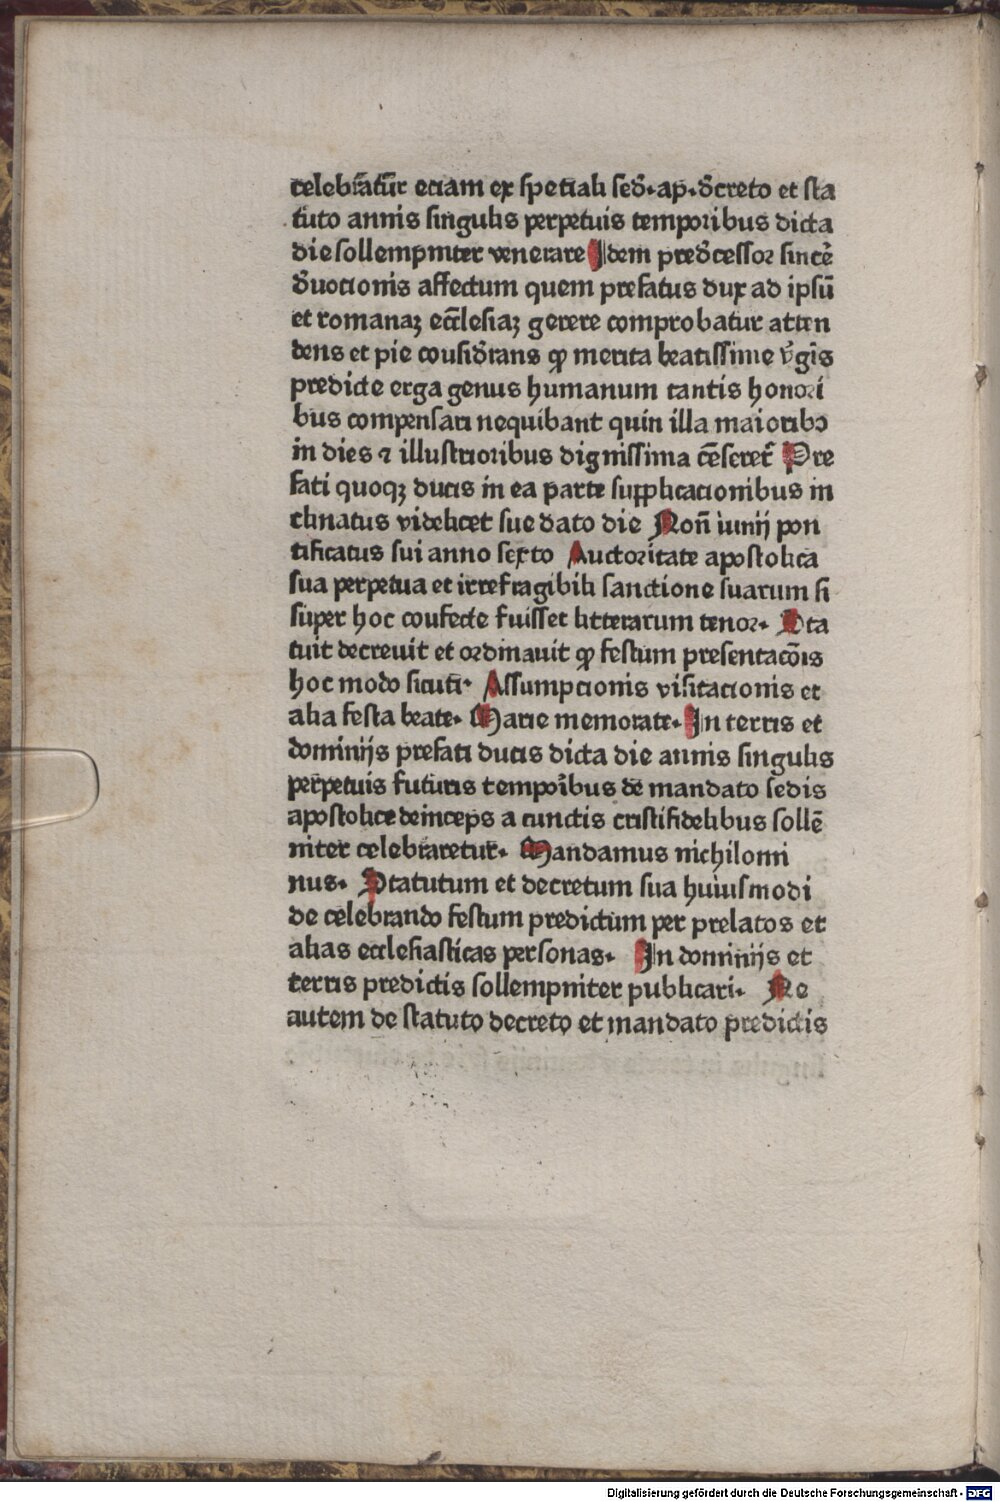 celebrat̄ur eciam ex speciali sed̄.ap.d̄creto et sta
tuto annis singulis perpetuis temporibus dicta
die sollempniter venerare Idem pred̄cessor sincē
d̄uocionis affectum quem prefatus dux ad ipsū
et romanaꝫ eccl̄esiaꝫ gerere comprobatur atten
dens et pie cousid̄rans ꝙ merita beatissime v̄gīs
predicte erga genus humanum tantis honori
bus compensari nequibant quin illa maioribꝰ
in dies ⁊ illustrioribus dignissima cēserer̄ Pre
fati quoqꝫ ducis in ea parte supplicacionibus in
clinatus videlicet sue dato die Non̄ iunij pon
tificatus sui anno sexto Auctoritate apostolica
sua perpetua et irrefragibili sanctione suarum si
super hoc coufecte fuisset litterarum tenor. Sta
tuit decreuit et ordinauit ꝙ festum presentacōis
hoc modo sicuti. Assumpcionis visitacionis et
alia festa beate. Marie memorate. In terris et
dominijs prefati ducis dicta die annis singulis
perpetuis futuris temporibus de mandato sedis
apostolice deinceps a cunctis cristifidelibus sollē
niter celebraretur. Mandamus nichilomi
nus. Statutum et decretum sua huiusmodi
de celebrando festum predictum per prelatos et
alias ecclesiasticas personas. In dominijs et
terris predictis sollempniter publicari. Ne
autem de statuto decreto et mandato predictis
Digitalisierung gefördert durch die Deutsche Forschungsgemeinschaft - DFG